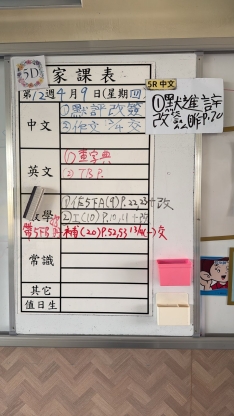 5D
家課表
第12週4月9日(星期四)
5R 中文
①默進評
改
P.70
中文
①默評改簽
②作文 交
英文
(1)查字典
(2) T.B.P.
數學
①作5下A(9)P.22,23 改
②工(10)P.10,11 改
帶5下B
補(20)P.52,53 交
常識
其它
值日生